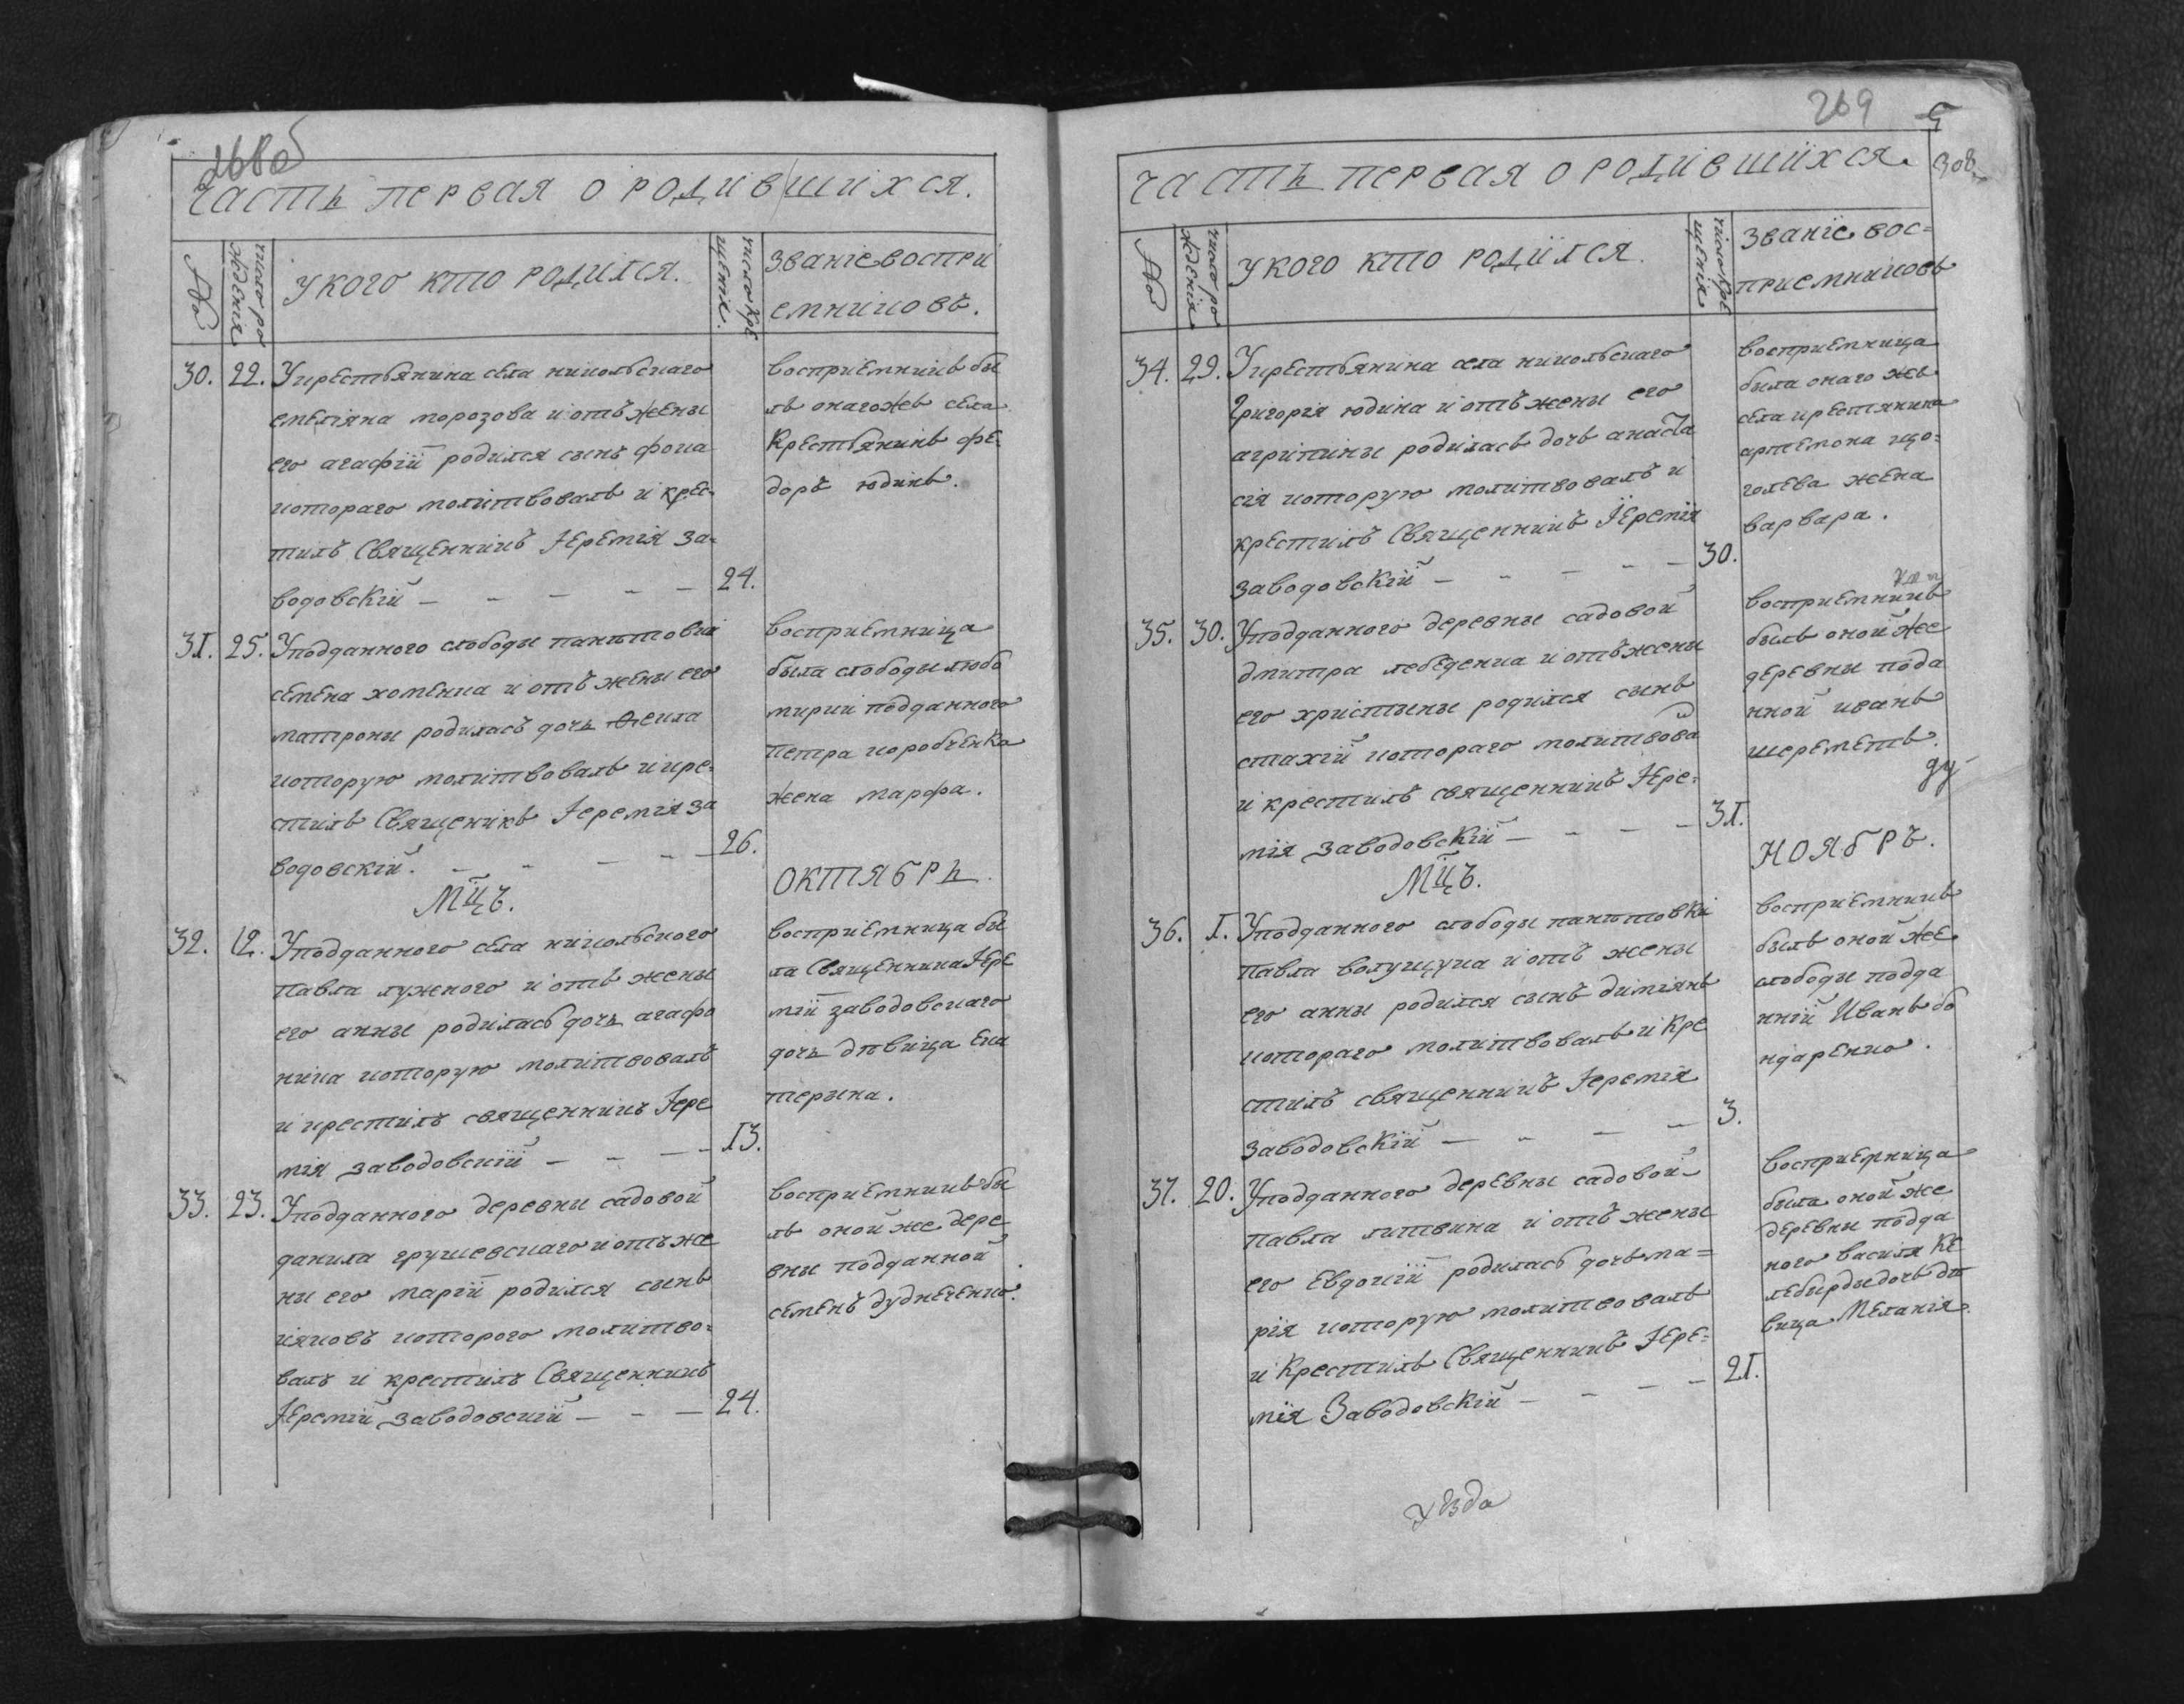 268об
ЧАСТЬ ПЕРВАЯ О РОДИВШИХСЯ.
№
число рождения
У КОГО КТО РОДИЛСЯ.
число крещенія.
Званіе воспри
емниковъ.
30. 22. У крестьянина села никольскаго
емеліяна морозова и отъ жены
его агафіи родился сынъ фока
котораго молитвовалъ и крес-
тилъ Священникъ Іеремія за-
водовскій — — — — — 24.
восприемникъ бы
лъ онагожъ села
Крестьянинъ фе-
доръ юдинъ.
31. 25. У подданного слободы панютовки
семена хоменка и отъ жены его
матроны родилась дочь Фекла
которую молитвовалъ и кре-
стилъ Священикъ Іеремія за
водовскій. — — — — 26.
восприемница
была слободы любо
мирки подданного
петра коробченка
жена марфа.
МЦЪ. ОКТЯБРЬ.
32. 12. У подданного села никольского
павла луженого и отъ жены
его анны родилась дочь агафо
ника которую молитвовалъ
и крестилъ священникъ Іере
мія заводовскій — — — — 13.
восприемница бы
ла Священника Іере
міи заводовскаго
дочь дѣвица ека
терина.
33. 23. У подданного деревни садовой
данила грушевскаго и отъ же
ны его маріи родился сынъ
іяковъ которого молитво-
валъ и крестилъ Священникъ
Іеремій заводовскій — — — 24.
восприемникъ бы
лъ оной же дере
вны подданной
семенъ дудпеченко.
269
308
ЧАСТЬ ПЕРВАЯ О РОДИВШИХСЯ.
№
число рождения
У КОГО КТО РОДИЛСЯ.
число крещенія
Званіе вос=
приемниковъ
34. 29. У крестьянина села никольскаго
Григорія юдина и отъ жены его
агрипины родилась дочь анаста
сія которую молитвовалъ и
крестилъ Священникъ Іеремія
заводовскій — — — — — 30.
восприемница
была онаго жъ
села крестянина
артемона що-
голева жена
варвара.
35. 30. У подданного деревны садовой
дмитра лебеденка и отъ жены
его христыны родился сынъ
стахій котораго молитвова
и крестилъ священникъ Іере-
мія заводовскій — — — — 31.
восприемникъ
былъ оной же
деревны подда
нной иванъ
шереметъ.
МЦЪ. НОЯБРЪ.
36. 1. У подданного слободы панютовкі
Павла волущука и отъ жены
его анны родился сынъ диміянъ
котораго молитвовалъ и кре
стилъ священникъ Іеремія
заводовскій — — — — 3.
восприемникъ
былъ оной же
слободы подда
нній Иванъ бо
ндаренко.
37. 20. У подданного деревны садовой
павла литвина и отъ жены
его Евдокіи родилась дочь ма=
рія которую молитвовалъ
и Крестилъ Священникъ Іере-
мія Заводовскій — — — — 21.
восприемница
была оной же
деревны подда
ного василя ке
лебырды дочь дѣ
вица Меланія.